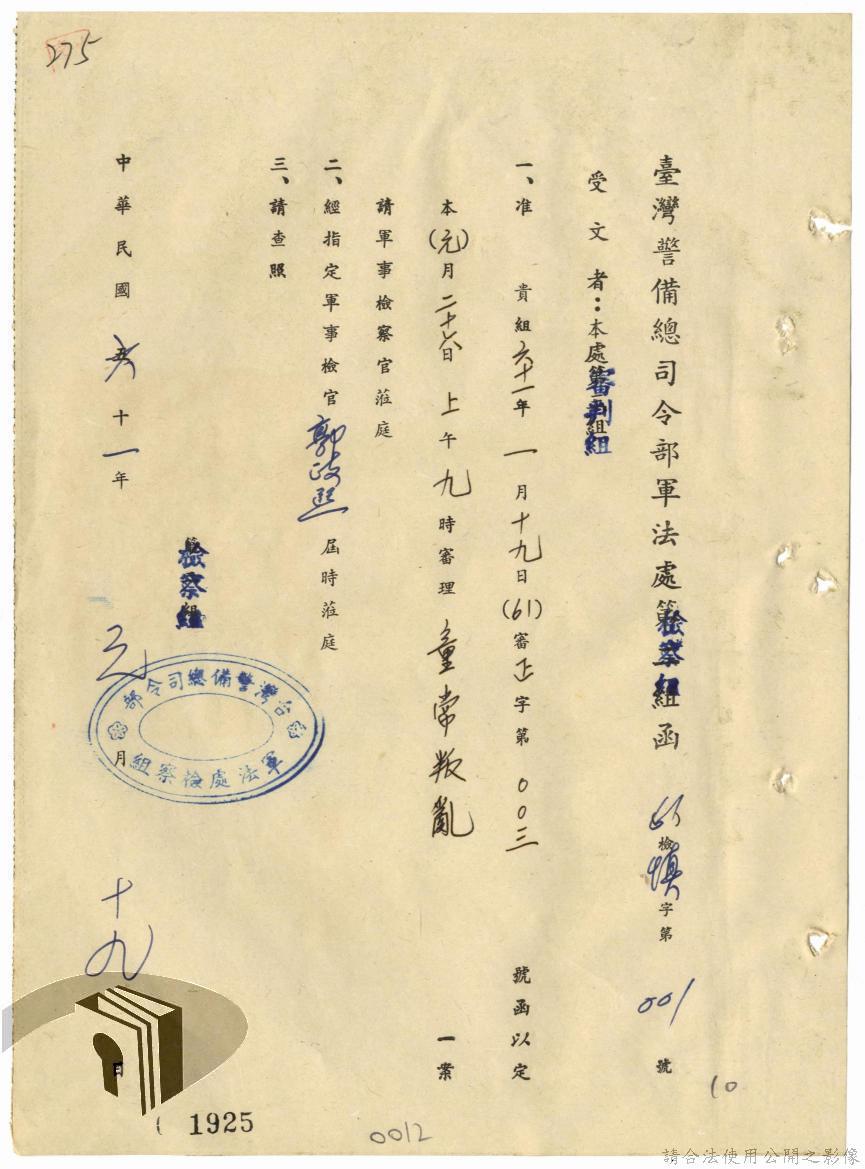 275
臺灣警備總司令部軍法處檢察組函
檢慎字第001號
受文者：本處審判組
一、准 貴組六十一年一月十九日(61)審正字第00三號函以定
本(元)月二十八日上午九時審理童常叛亂一案
請軍事檢察官蒞庭
二、經指定軍事檢官郭政熙屆時蒞庭
三、請查照
檢察組
中華民國六十一年元月十九日
台灣警備總司令部
軍法處檢察組
10
1925
0012
請合法使用公開之影像